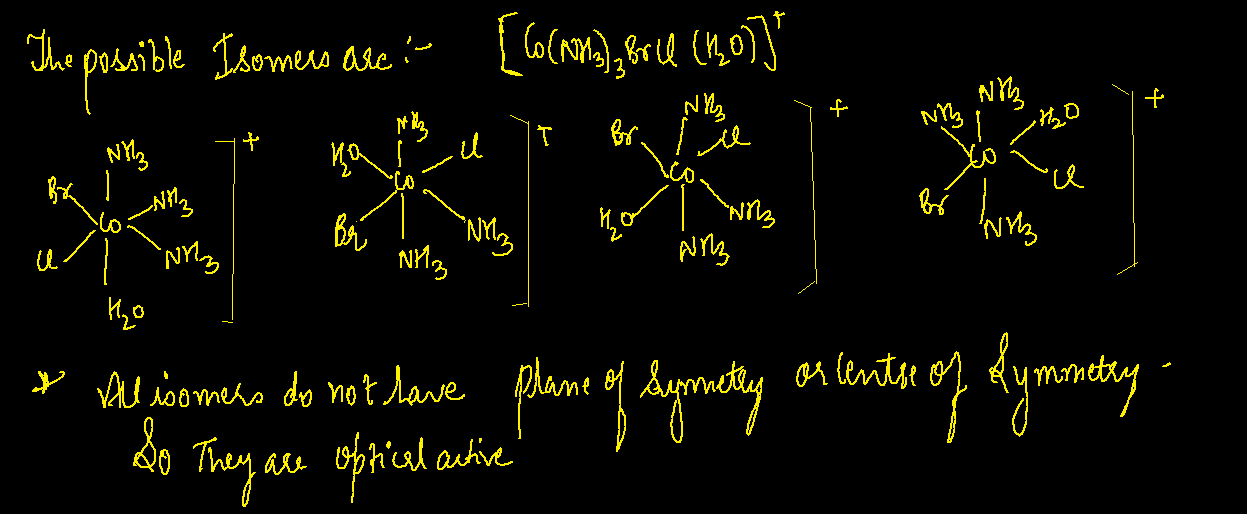 The possible Isomers are :- [Co(NH3)3BrCl (H2O)]+
NH3 Br NH3 Co Cl NH3 H2O +
NH3 H2O Cl Co Br NH3 NH3 +
NH3 Br Cl Co H2O NH3 NH3 +
NH3 NH3 H2O Co Br Cl NH3 +
* All isomers do not have plane of symmetry or Centre of Symmetry.
So They are optical active